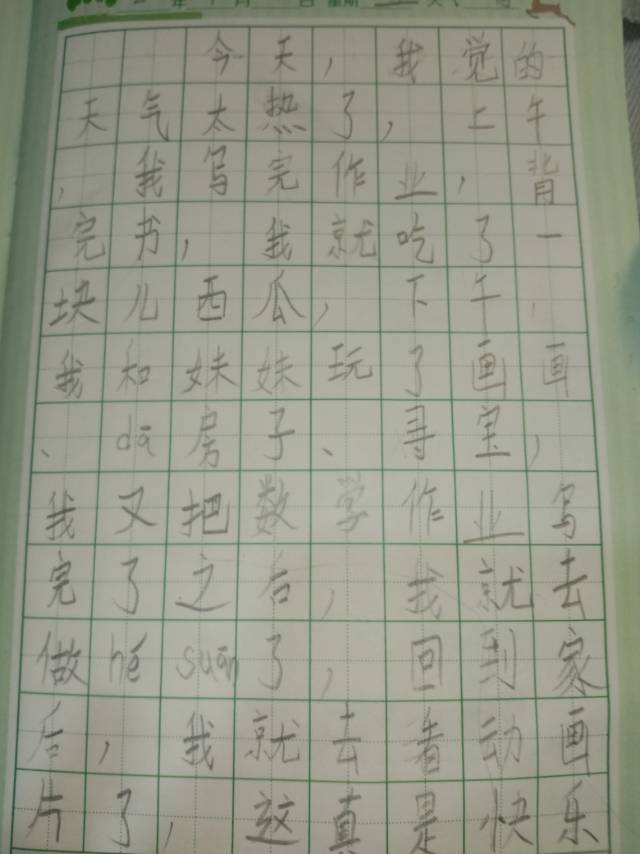 今天，我觉的
天气太热了，上午
，我写完作业，背
完书，我就吃了一
块儿西瓜，下午，
我和妹妹玩了画画
、dā房子、寻宝，
我又把数学作业写
完了之后，我就去
做hé suān了，回到家
后，我就去看动画
片了，这真是快乐